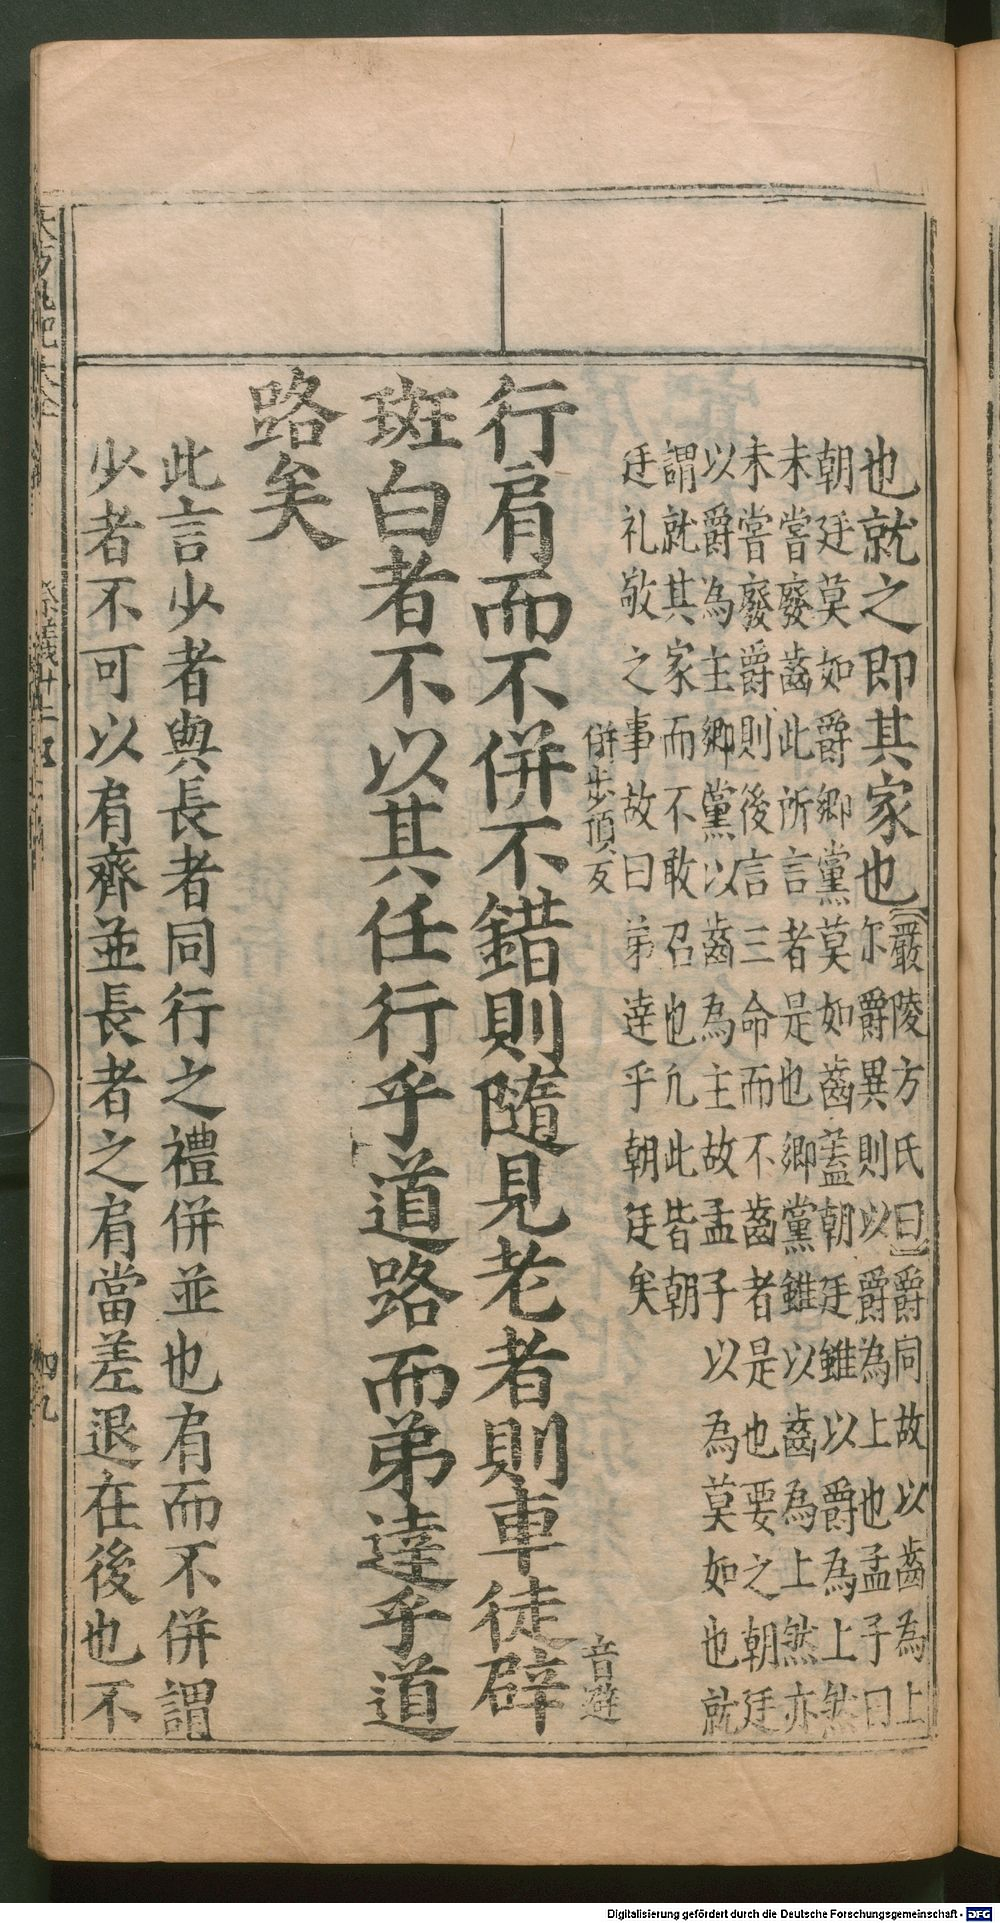 也就之即其家也
【嚴陵方氏曰】爵同故以齒為上
尔爵異則以爵為上也孟子曰
朝廷莫如爵鄉黨莫如齒蓋朝廷雖以爵為上然
未嘗廢齒此所言者是也鄉黨雖以齒為上然亦
未嘗廢爵則後言三命而不齒者是也要之朝廷
以爵為主鄉黨以齒為主故孟子以為莫如也就
謂就其家而不敢召也凢此皆朝
廷礼敬之事故曰弟達乎朝廷矣
併步頂反
音避
行肩而不併不錯則隨見老者則車徒辟
斑白者不以其任行乎道路而弟達乎道
路矣
此言少者與長者同行之禮併並也肩而不併謂
少者不可以肩齊並長者之肩當差退在後也不
祭義
四九
Digitalisierung gefördert durch die Deutsche Forschungsgemeinschaft - DFG